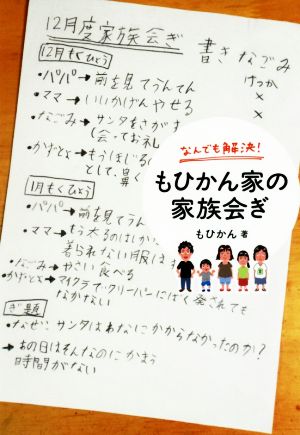 12月度家族会ぎ
書き なごみ
12月もくひょう
けっか
・パパ→前を見てうんてん
×
・ママ→いいかげんやせる
×
・なごみ→サンタをさがす
(会ってお礼
・かずとよ→もうほじるの
として、鼻く
1月もくひょう
・パパ→前を見てうん
・ママ→もう太るのはしかた
着られない服はす
・なごみ→やさい食べる
・かずとよ→マイクラでクリーパーにばく発されても
なかない
ぎ題
・なぜ、サンタはあなにかからなかったのか?
→あの日はそんなのにかまう
時間がない
なんでも解決!
もひかん家の
家族会ぎ
もひかん 著